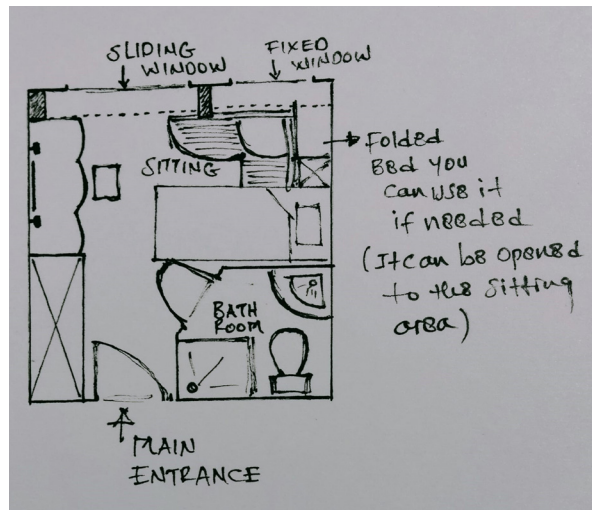 SLIDING
WINDOW
FIXED
WINDOW
SITTING
Folded
Bed you
can use it
if needed
(It can be opened
to the sitting
area)
BATH
ROOM
MAIN
ENTRANCE